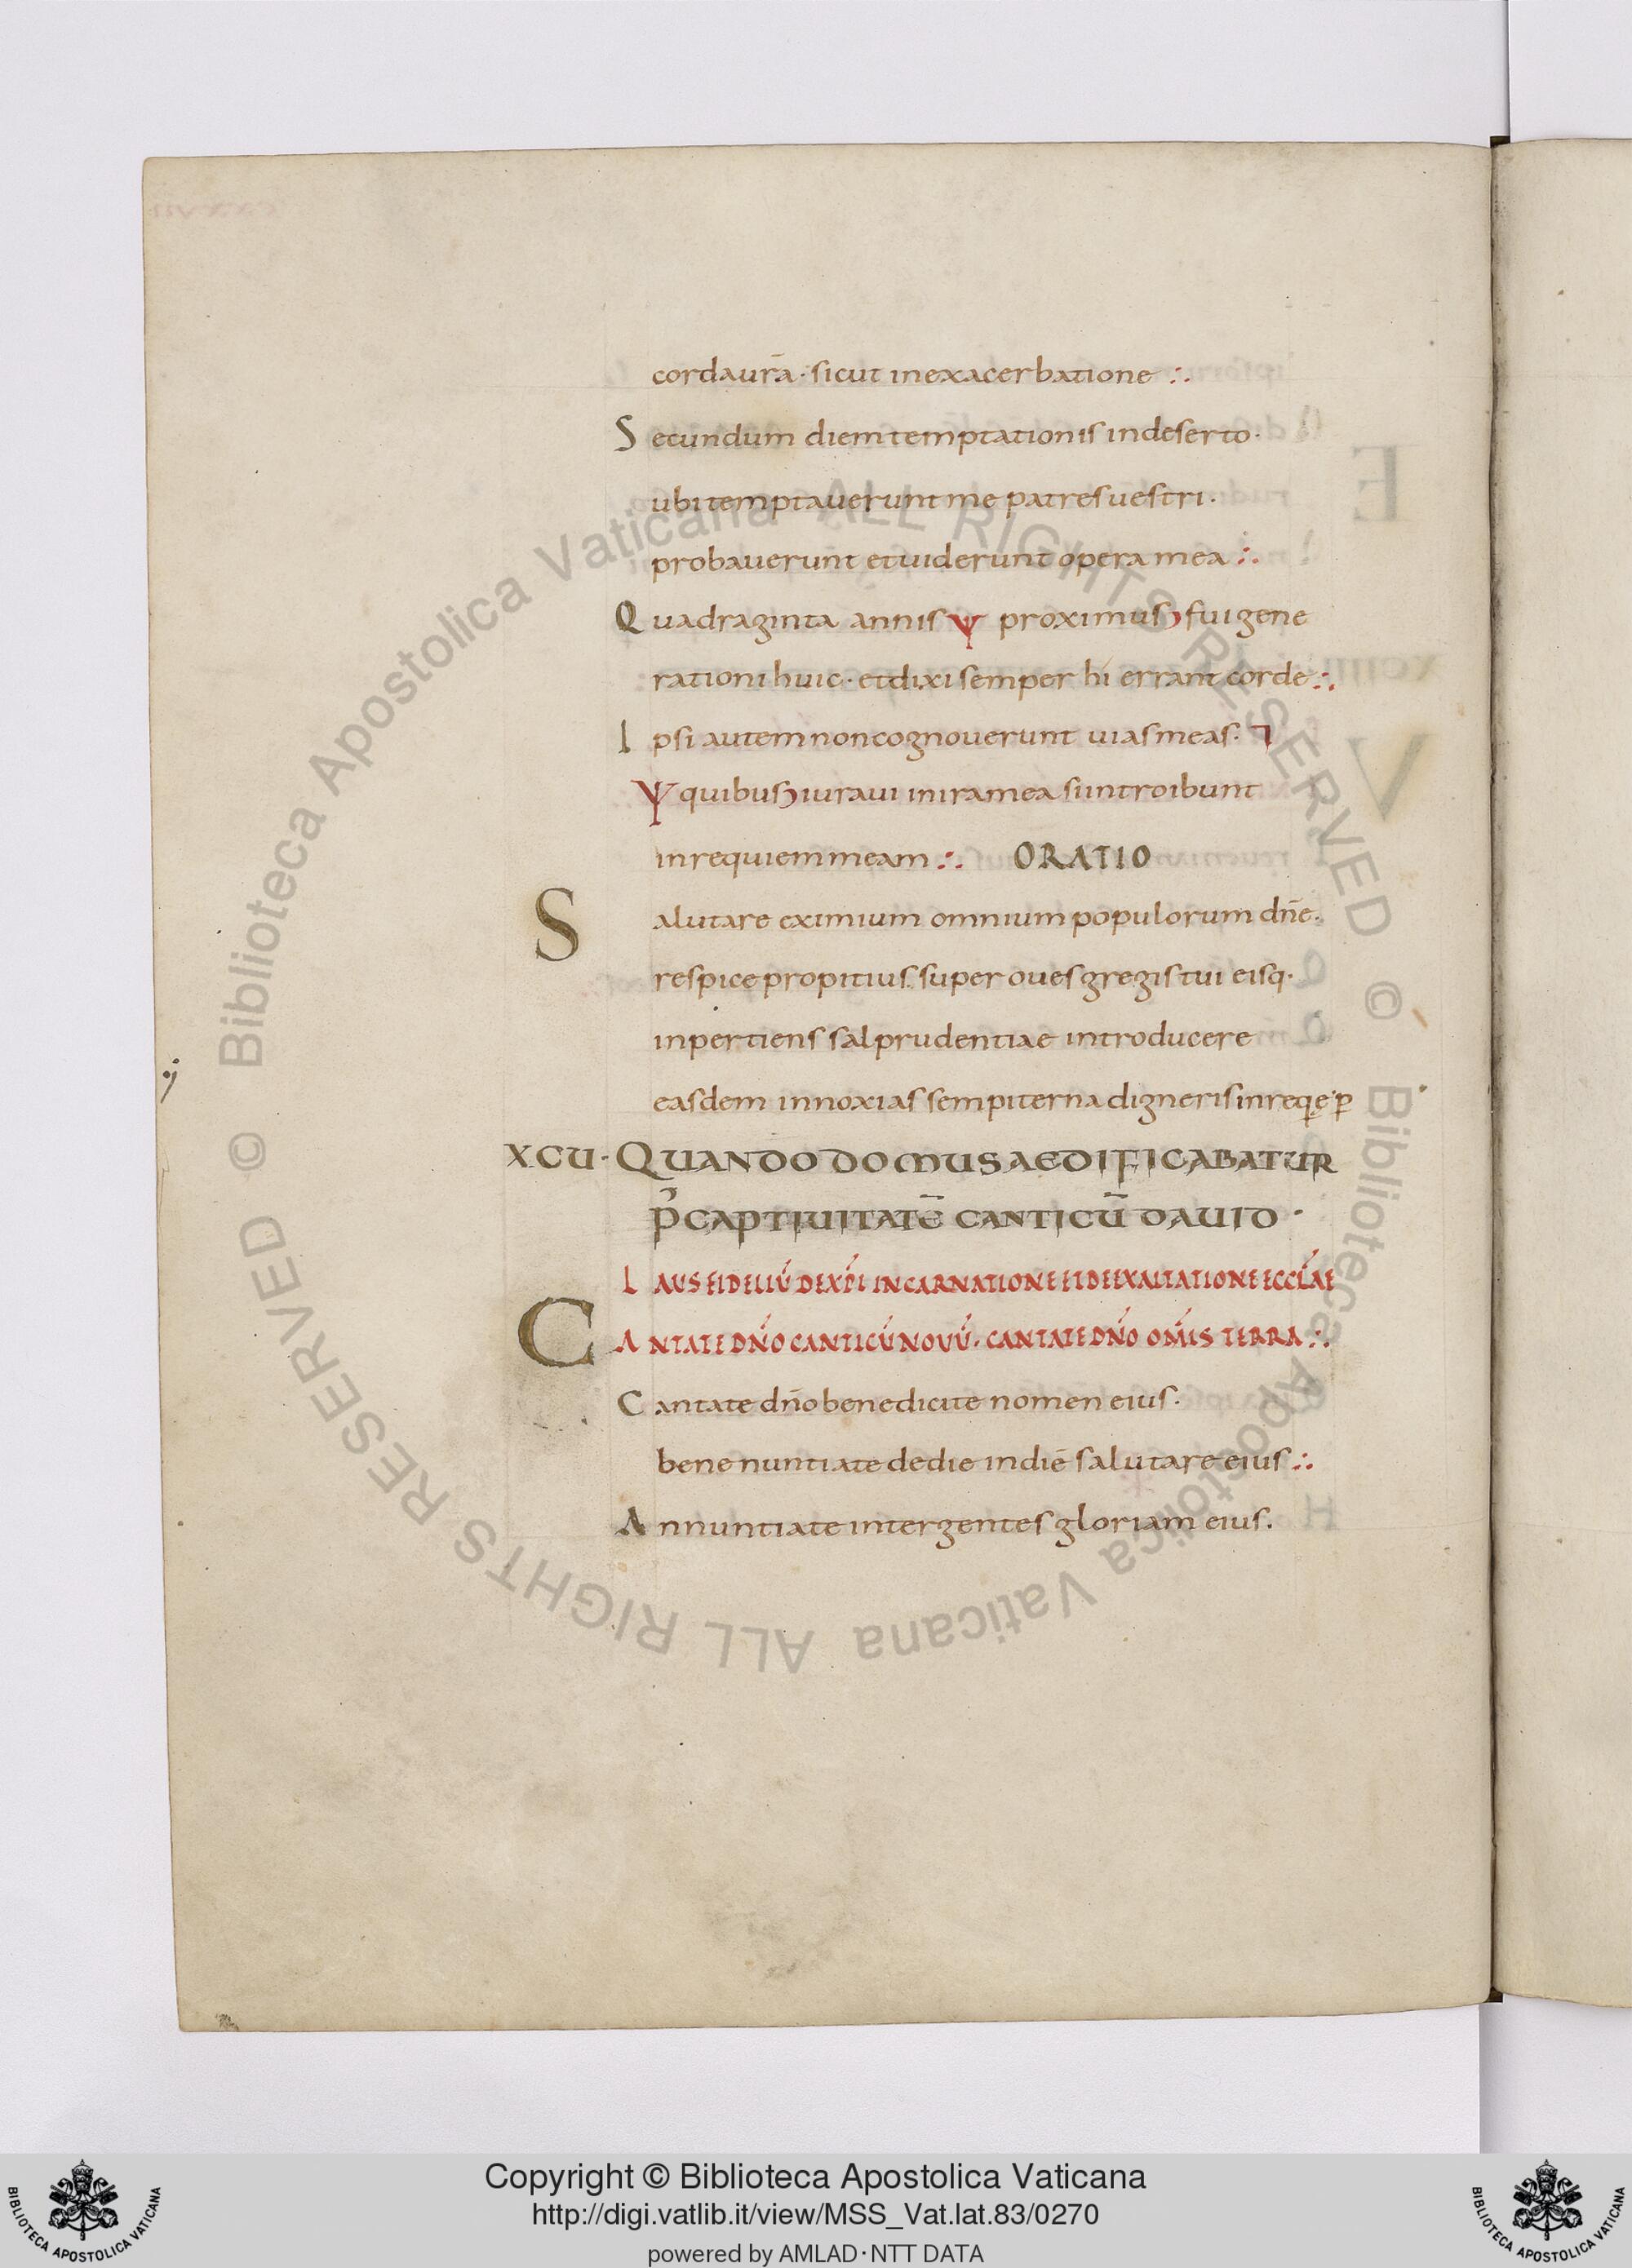 corda ur̄a · sicut in exacerbatione ∴
Secundum diem temptationis in deserto ·
ubi temptauerunt me patres uestri ·
probauerunt et uiderunt opera mea ∴
Quadraginta annis Ψ proximus fui gene
rationi huic · et dixi semper hi errant corde ∴
Ipsi autem non cognouerunt uias meas ·
Ψ quibus iuraui in ira mea si introibunt
in requiem meam ∴ ORATIO
Salutare eximium omnium populorum dn̄e ·
respice propitius super oues gregis tui eisq·
inpertiens sal prudentiae introducere
easdem innoxias sempiterna digneris in
XCU · QUANDO DOMUS AEDIFICABATUR
P̓ CAPTIUITATĒ CANTICŪ DAUID ·
LAUS FIDELIŪ DE XP̄I INCARNATIONE ET DE EXALTATIONE ECCL̄AE
CANTATE DN̄O CANTICŪ NOVŪ · CANTATE DN̄O OM̄IS TERRA ∴
Cantate dn̄o benedicite nomen eius ·
bene nuntiate de die in diē salutare eius ∴
Annuntiate inter gentes gloriam eius ·
© Biblioteca Apostolica Vaticana ALL RIGHTS RESERVED
© Biblioteca Apostolica Vaticana ALL RIGHTS RESERVED
BIBLIOTECA APOSTOLICA VATICANA
Copyright © Biblioteca Apostolica Vaticana
http://digi.vatlib.it/view/MSS_Vat.lat.83/0270
powered by AMLAD·NTT DATA
BIBLIOTECA APOSTOLICA VATICANA